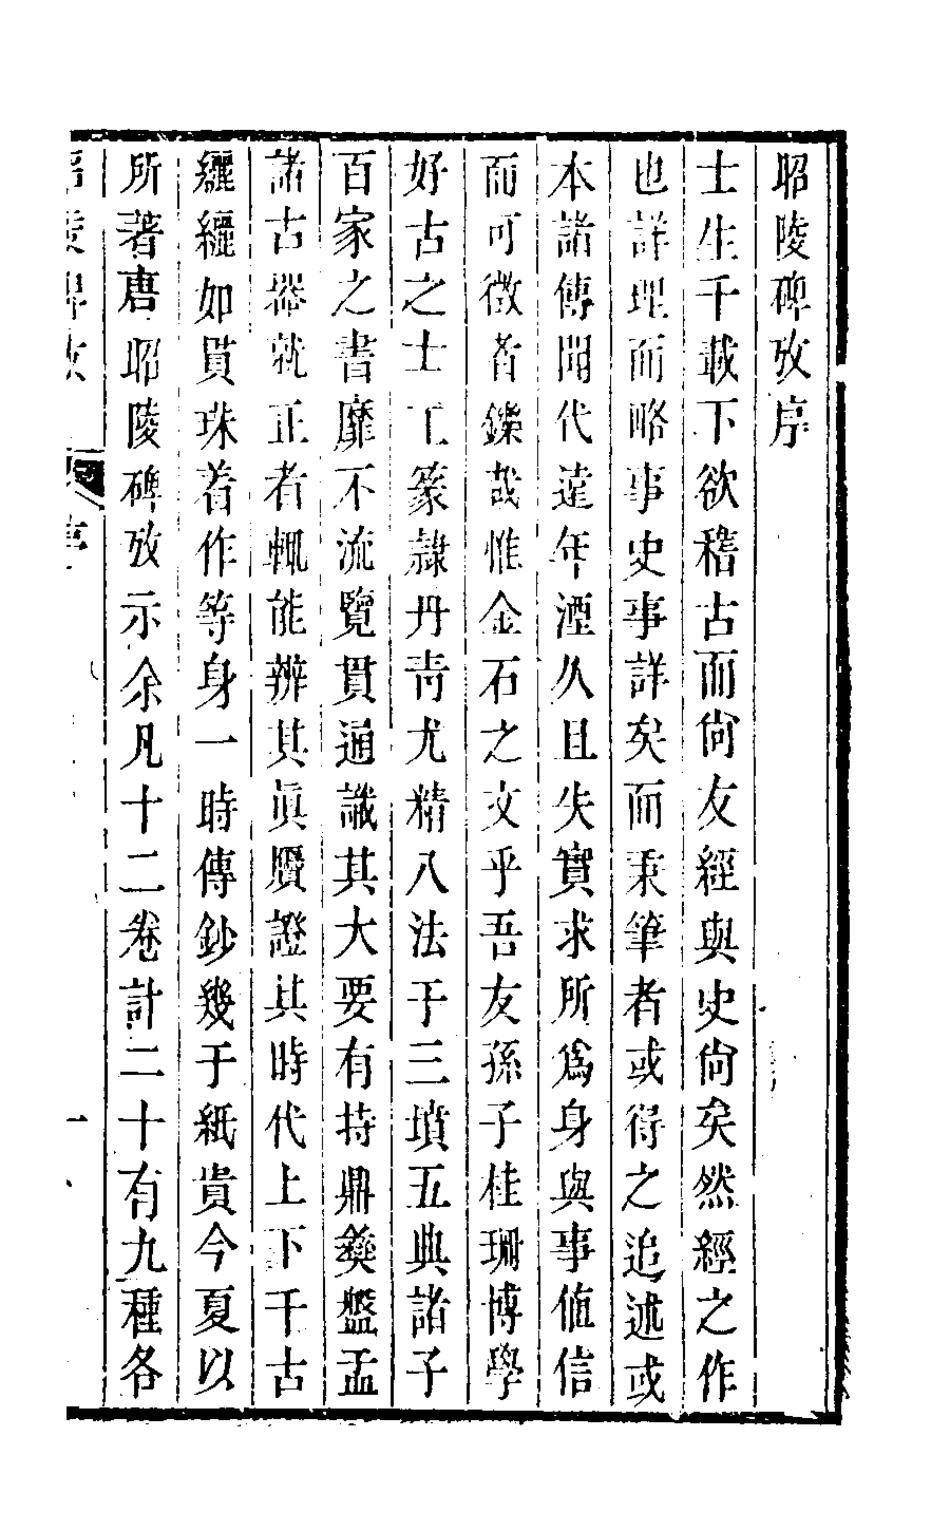 昭陵碑攷序
士生千載下欲稽古而尙友經與史尙矣然經之作
也詳理而略事史事詳矣而秉筆者或得之追述或
本諸傳聞代遠年湮久且失實求所爲身與事値信
而可徴者鑠哉惟金石之文乎吾友孫子桂珊博學
好古之士工篆隷丹靑尤精八法于三墳五典諸子
百家之書靡不流覽貫通識其大要有持鼎彝盤盂
諸古器就正者輒能辨其眞贗證其時代上下千古
纚纚如貫珠着作等身一時傳鈔幾于紙貴今夏以
所著唐昭陵碑攷示余凡十二卷計二十有九種各
昭陵碑攷 序 一